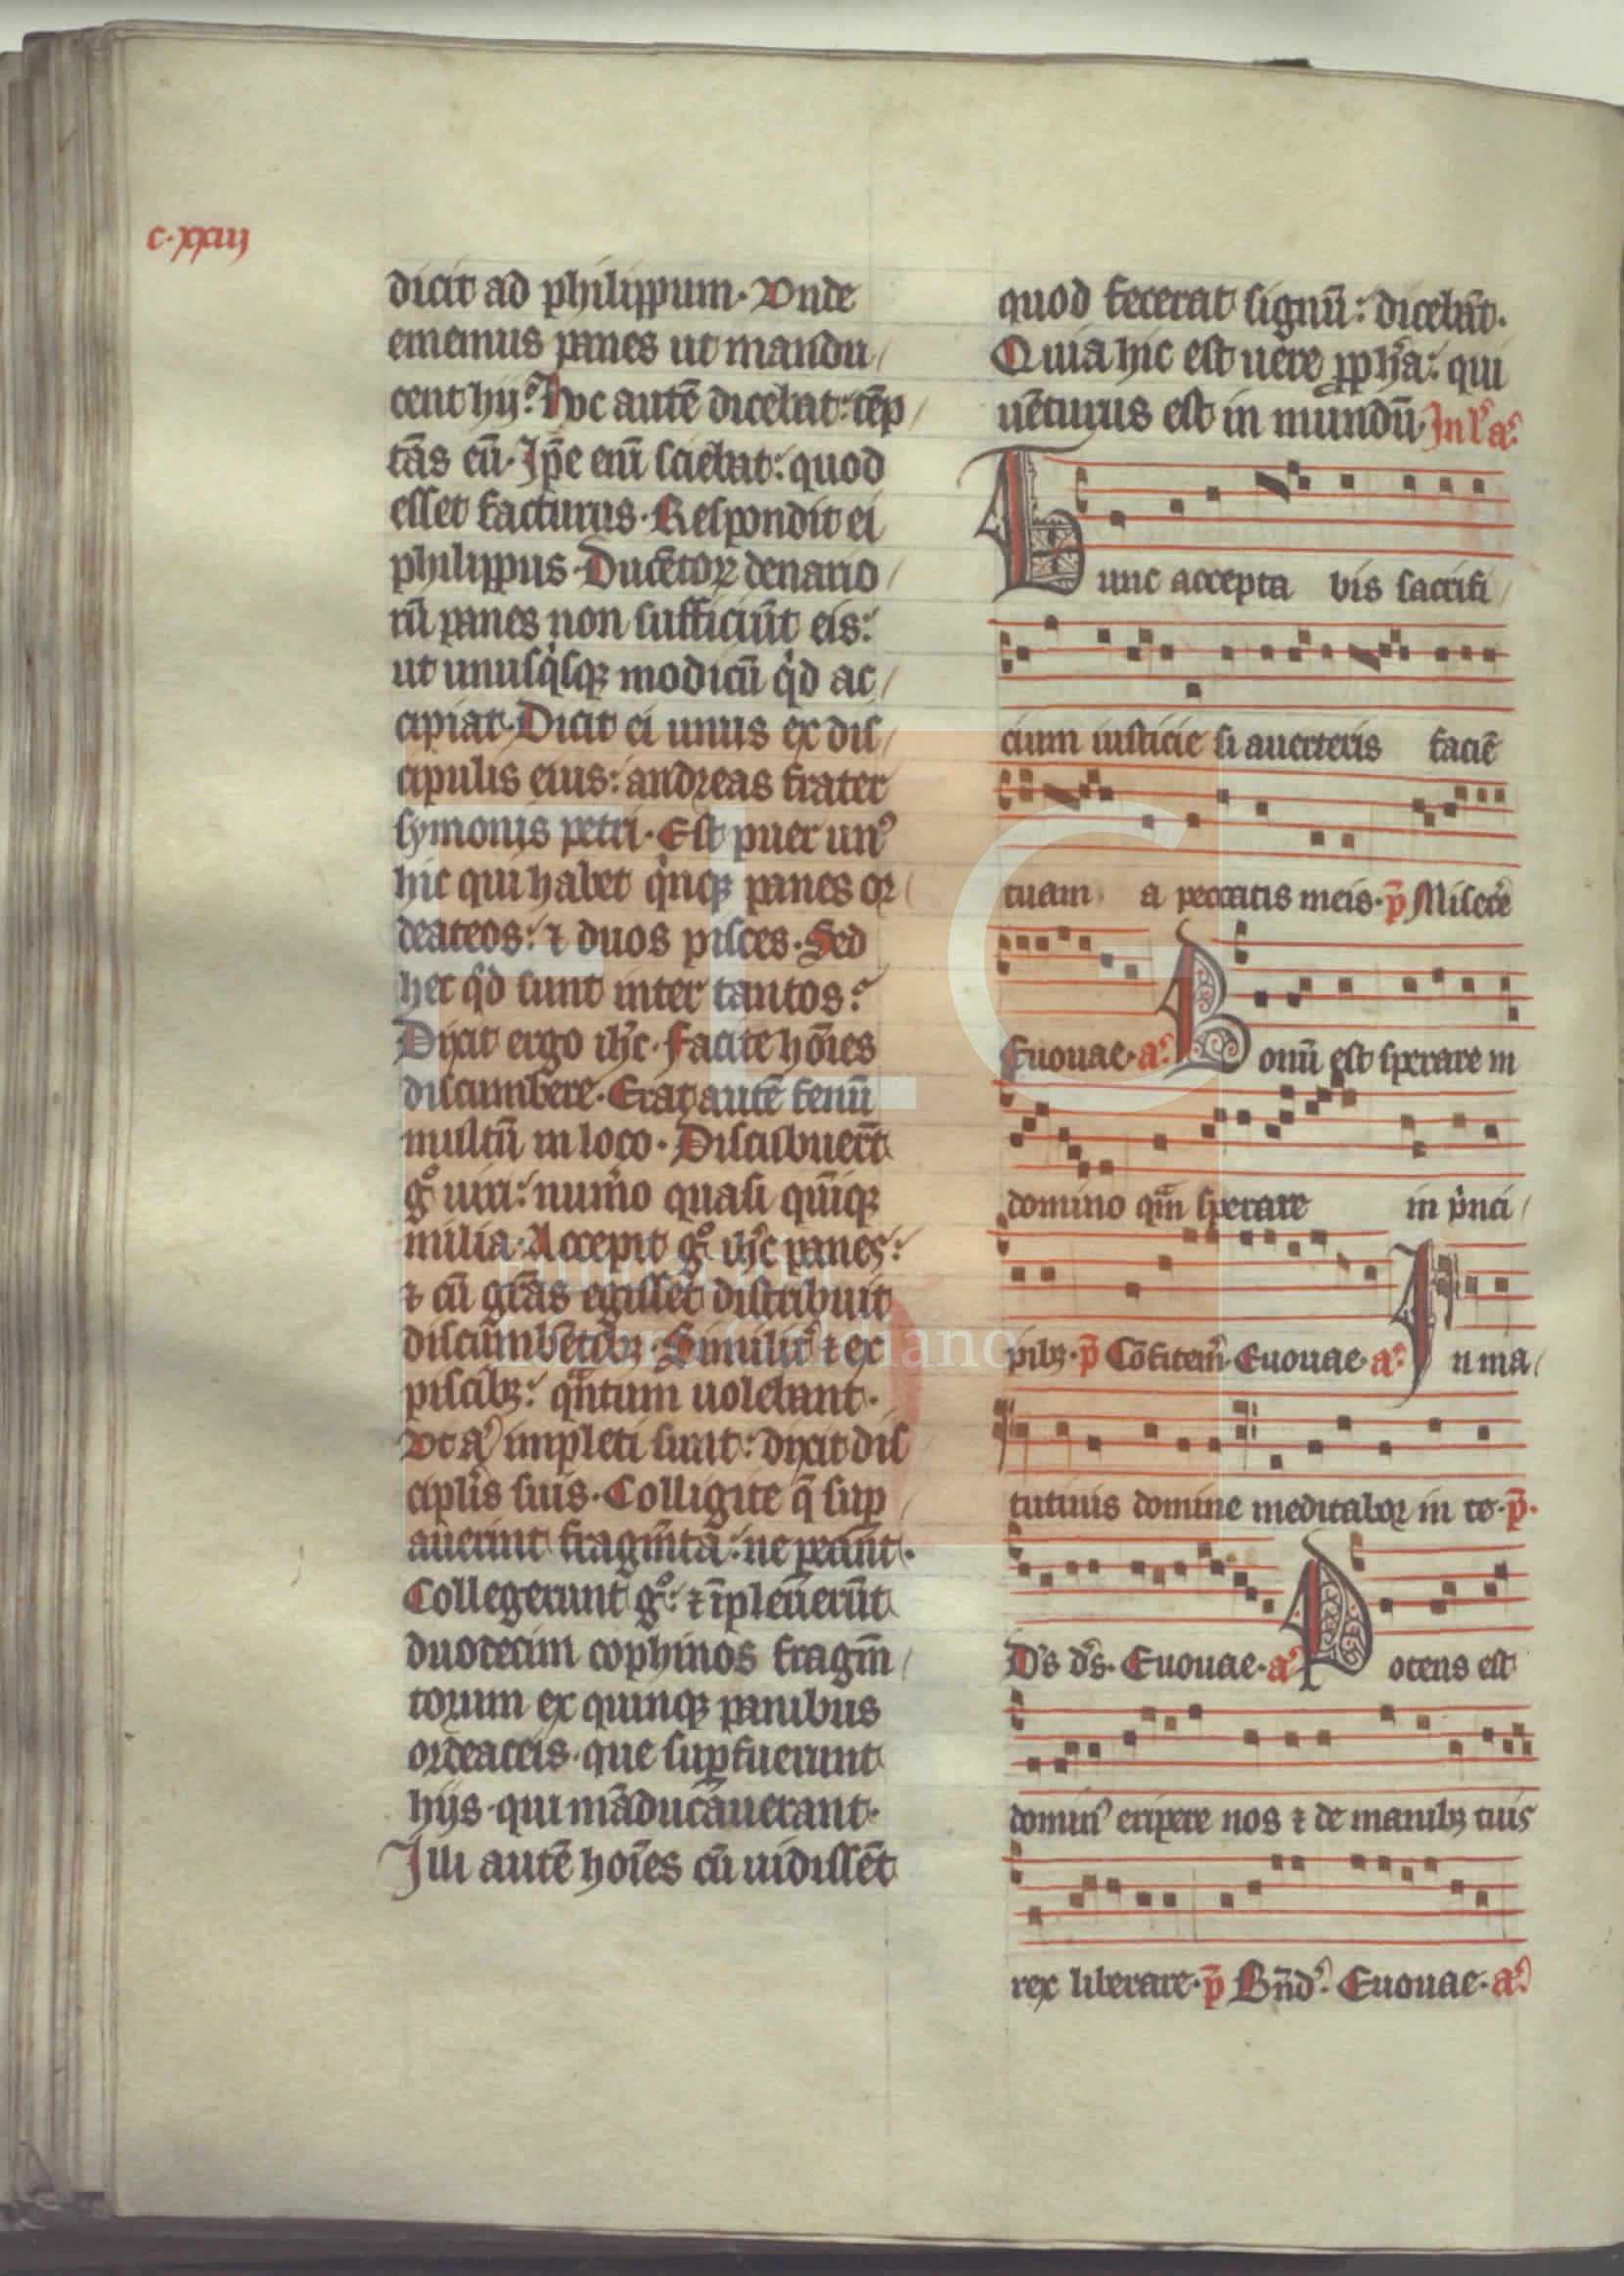 c.xxiij
dicit ad philippum. Vnde
ememus panes ut mandu/
cent hij? Hoc autē dicebat: tēp/
tās eū. Ip̄e eni͂ sciebat: quod
esset facturus. Respondit ei
philippus. Ducētoꝝ denario/
rū panes non sufficiūt eis:
ut unusqͥsqꝫ modicū qͥd ac/
cipiat. Dicit ei unus ex dis/
cipulis eius: andreas frater
symonis petri. Est puer unꝰ
hic qui habet qͥnqꝫ panes or/
deateos: ⁊ duos pisces. Sed
hec qͥd sunt inter tantos?
Dixit ergo ih̄c. Facite hōīes
discumbere. Erat autē fenū
multū in loco. Discubuer̄t
gͦ uiri: num̄o quasi quīqꝫ
milia. Accepit gͦ ih̄c panes:
⁊ cū gr̄as egisset distribuit
discumbētibꝫ. Similit͛ ⁊ ex
piscibꝫ: qͣntum uolebant.
Vt aū impleti sunt: dixit dis
cipl̓is suis. Colligite q̄ sup/
auerint fragm̄ta: ne peāt.
Collegerunt gͦ: ⁊ īpleuerūt
duodecim cophinos fragm̄/
torum ex quinqꝫ panibus
ordeaceis. que supfuerunt
hijs. qui māducauerant.
Illi autē hoīes cū uidissēt
quod fecerat signū: dicebāt.
Quia hic est uere ꝓph̄a: qui
uēturus est in mundū. In l' aͦ
Tunc accepta bis sacrifi/
cium iusticie si auerteris faciē
tuam a peccatis meis. p̄ Miserē
Euouae. aͦ Bonū est sperare in
domino qm̄ sperare in pͥnci/
pibꝫ. p̄ Cōfitem̄. Euouae. aͦ In ma/
tutinis domine meditaboꝝ in te. p̄.
D̄s d̄s. Euouae. aͦ Potens est
dominꝰ eripere nos ⁊ de manibꝫ tuis
rex liberare. p̄ Bn̄dꝰ. Euouae. aͦ